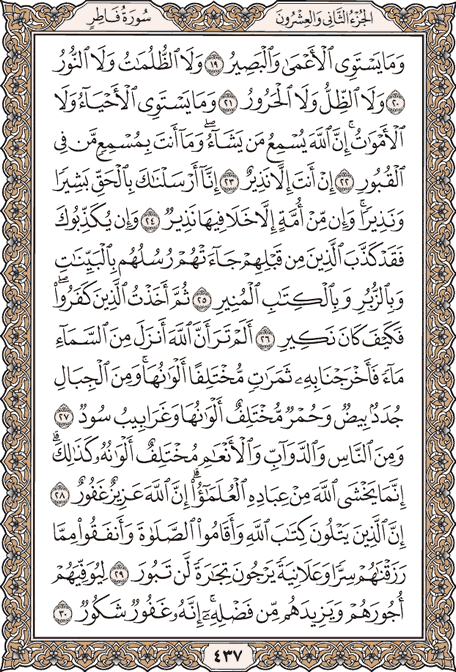 الجزء الثاني والعشرون سورة فاطر
وَمَا يَسْتَوِي الْأَعْمَىٰ وَالْبَصِيرُ ١٩ وَلَا الظُّلُمَاتُ وَلَا النُّورُ
٢٠ وَلَا الظِّلُّ وَلَا الْحَرُورُ ٢١ وَمَا يَسْتَوِي الْأَحْيَاءُ وَلَا
الْأَمْوَاتُ ۚ إِنَّ اللَّهَ يُسْمِعُ مَن يَشَاءُ ۖ وَمَا أَنتَ بِمُسْمِعٍ مَّن فِي
الْقُبُورِ ٢٢ إِنْ أَنتَ إِلَّا نَذِيرٌ ٢٣ إِنَّا أَرْسَلْنَاكَ بِالْحَقِّ بَشِيرًا
وَنَذِيرًا ۚ وَإِن مِّنْ أُمَّةٍ إِلَّا خَلَا فِيهَا نَذِيرٌ ٢٤ وَإِن يُكَذِّبُوكَ
فَقَدْ كَذَّبَ الَّذِينَ مِن قَبْلِهِمْ جَاءَتْهُمْ رُسُلُهُم بِالْبَيِّنَاتِ
وَبِالزُّبُرِ وَبِالْكِتَابِ الْمُنِيرِ ٢٥ ثُمَّ أَخَذْتُ الَّذِينَ كَفَرُوا ۖ
فَكَيْفَ كَانَ نَكِيرِ ٢٦ أَلَمْ تَرَ أَنَّ اللَّهَ أَنزَلَ مِنَ السَّمَاءِ
مَاءً فَأَخْرَجْنَا بِهِ ثَمَرَاتٍ مُّخْتَلِفًا أَلْوَانُهَا ۚ وَمِنَ الْجِبَالِ
جُدَدٌ بِيضٌ وَحُمْرٌ مُّخْتَلِفٌ أَلْوَانُهَا وَغَرَابِيبُ سُودٌ ٢٧
وَمِنَ النَّاسِ وَالدَّوَابِّ وَالْأَنْعَامِ مُخْتَلِفٌ أَلْوَانُهُ كَذَٰلِكَ ۗ
إِنَّمَا يَخْشَى اللَّهَ مِنْ عِبَادِهِ الْعُلَمَاءُ ۗ إِنَّ اللَّهَ عَزِيزٌ غَفُورٌ ٢٨
إِنَّ الَّذِينَ يَتْلُونَ كِتَابَ اللَّهِ وَأَقَامُوا الصَّلَاةَ وَأَنفَقُوا مِمَّا
رَزَقْنَاهُمْ سِرًّا وَعَلَانِيَةً يَرْجُونَ تِجَارَةً لَّن تَبُورَ ٢٩ لِيُوَفِّيَهُمْ
أُجُورَهُمْ وَيَزِيدَهُم مِّن فَضْلِهِ ۚ إِنَّهُ غَفُورٌ شَكُورٌ ٣٠
٤٣٧